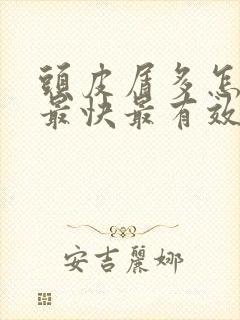 頭皮屑多怎
最快最有效
安吉麗娜